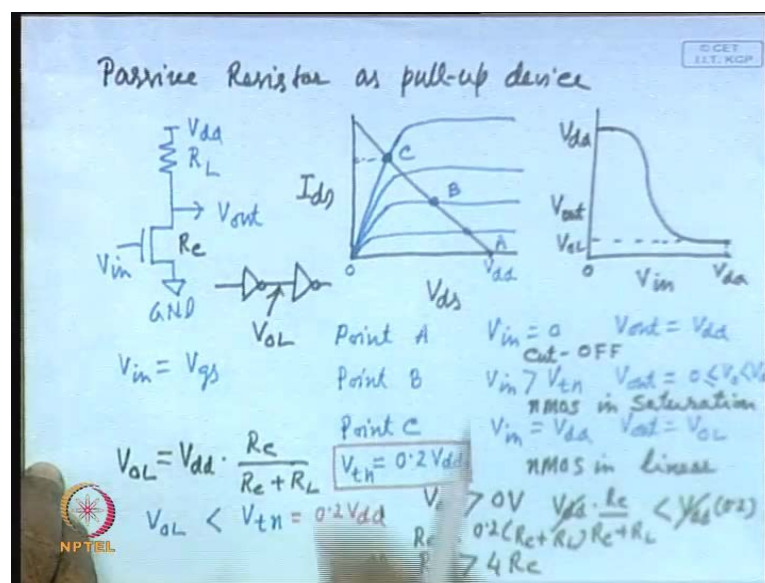 © CET
I.I.T. KGP
Passive Resistor as pull-up device
Vdd
RL
Vout
Rc
Vin
GND
VOL
Ids
C
B
A
0
Vdd
Vds
Vdd
Vout
VOL
0
Vin
Vdd
Vin = Vgs
Point A Vin = 0 Vout = Vdd
Cut-OFF
Point B Vin > Vtn Vout = 0 ≤ Vo <
nMOS in Saturation
Point C Vin = Vdd Vout = VOL
nMOS in linear
VOL = Vdd · Rc / (Rc + RL)
Vtn = 0.2 Vdd
VOL < Vtn = 0.2 Vdd
> 0V Vdd · Rc / (Rc + RL) < Vdd (0.2)
0.2 (Rc + RL)
> 4 Rc
NPTEL